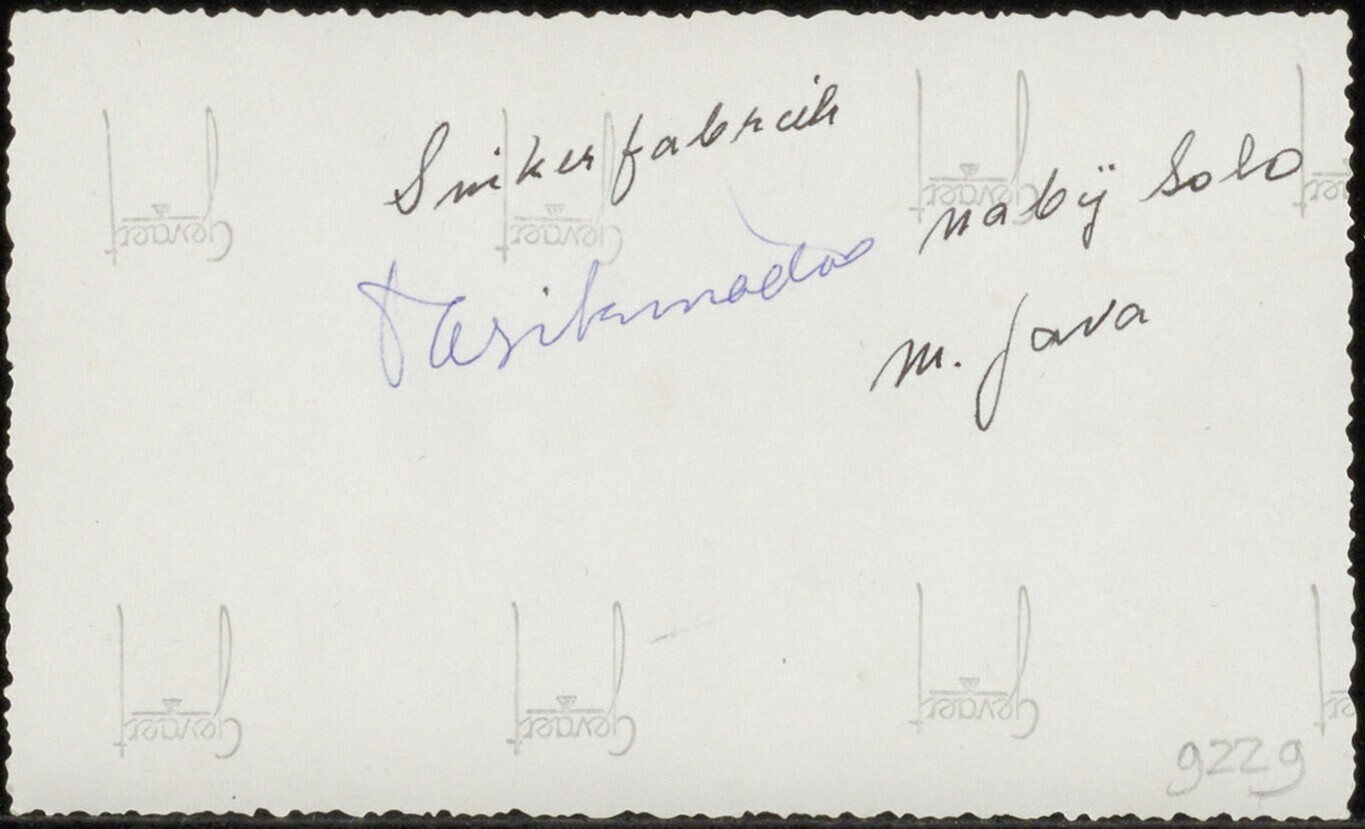 Suikerfabriek
Tasikmadoe nabÿ Solo
M. Java
Gevaert Gevaert Gevaert Gevaert
Gevaert Gevaert Gevaert
9229